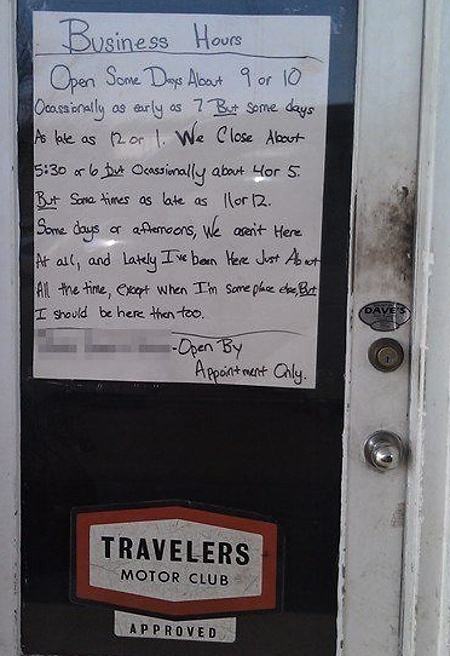 Business Hours
Open Some Days About 9 or 10
Ocassionally as early as 7 But some days
As late as 12 or 1. We Close About
5:30 or 6 but Ocassionally about 4 or 5.
But Some times as late as 11 or 12.
Some days or afternoons, We aren't Here
At all, and lately I've been Here Just About
All the time, Except when I'm someplace else, But
I should be here then too.
-Open By
Appointment Only.
DAVE'S
TRAVELERS
MOTOR CLUB
APPROVED